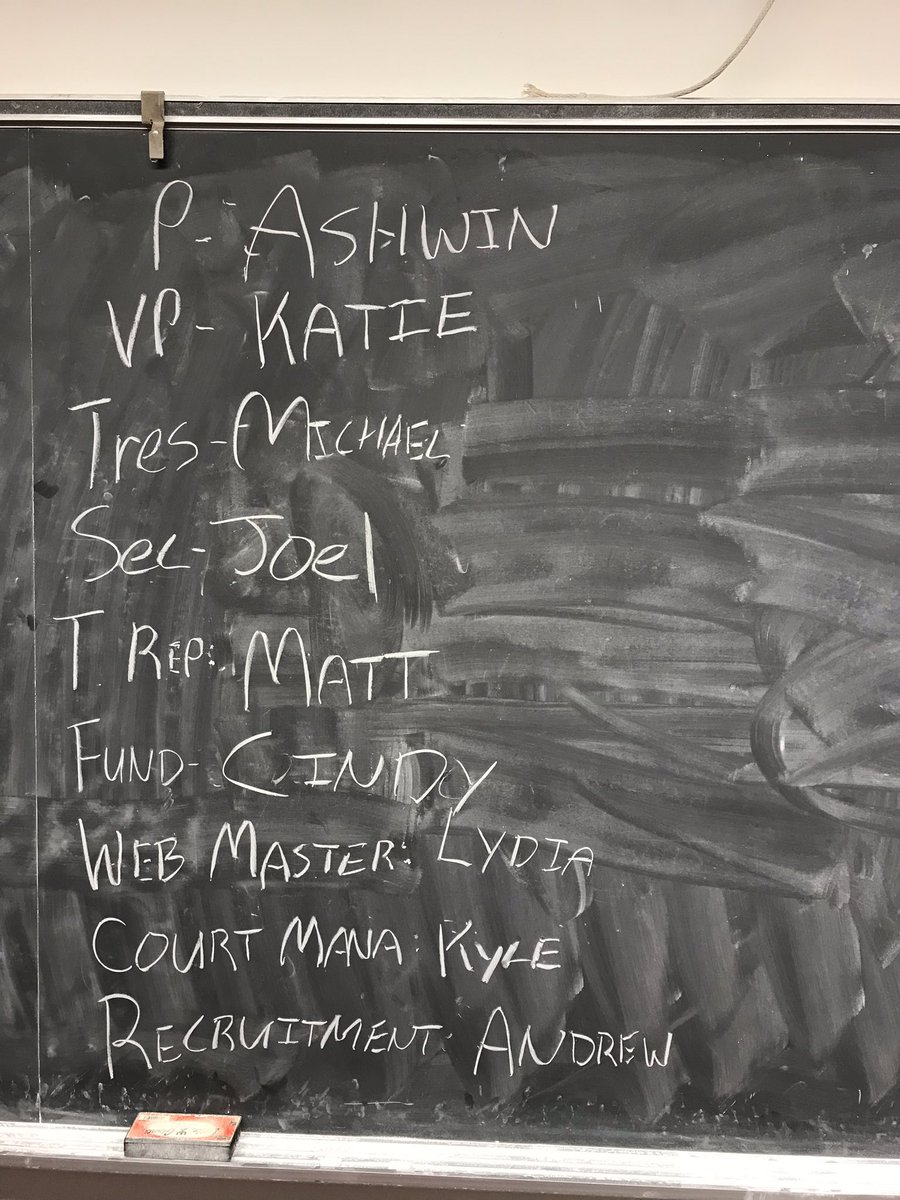 P- ASHWIN
VP- KATIE
Tres- MICHAEL
Sec- Joel
T REP: MATT
FUND- CINDY
WEB MASTER: LYDIA
COURT MANA: KYLE
RECRUITMENT: ANDREW